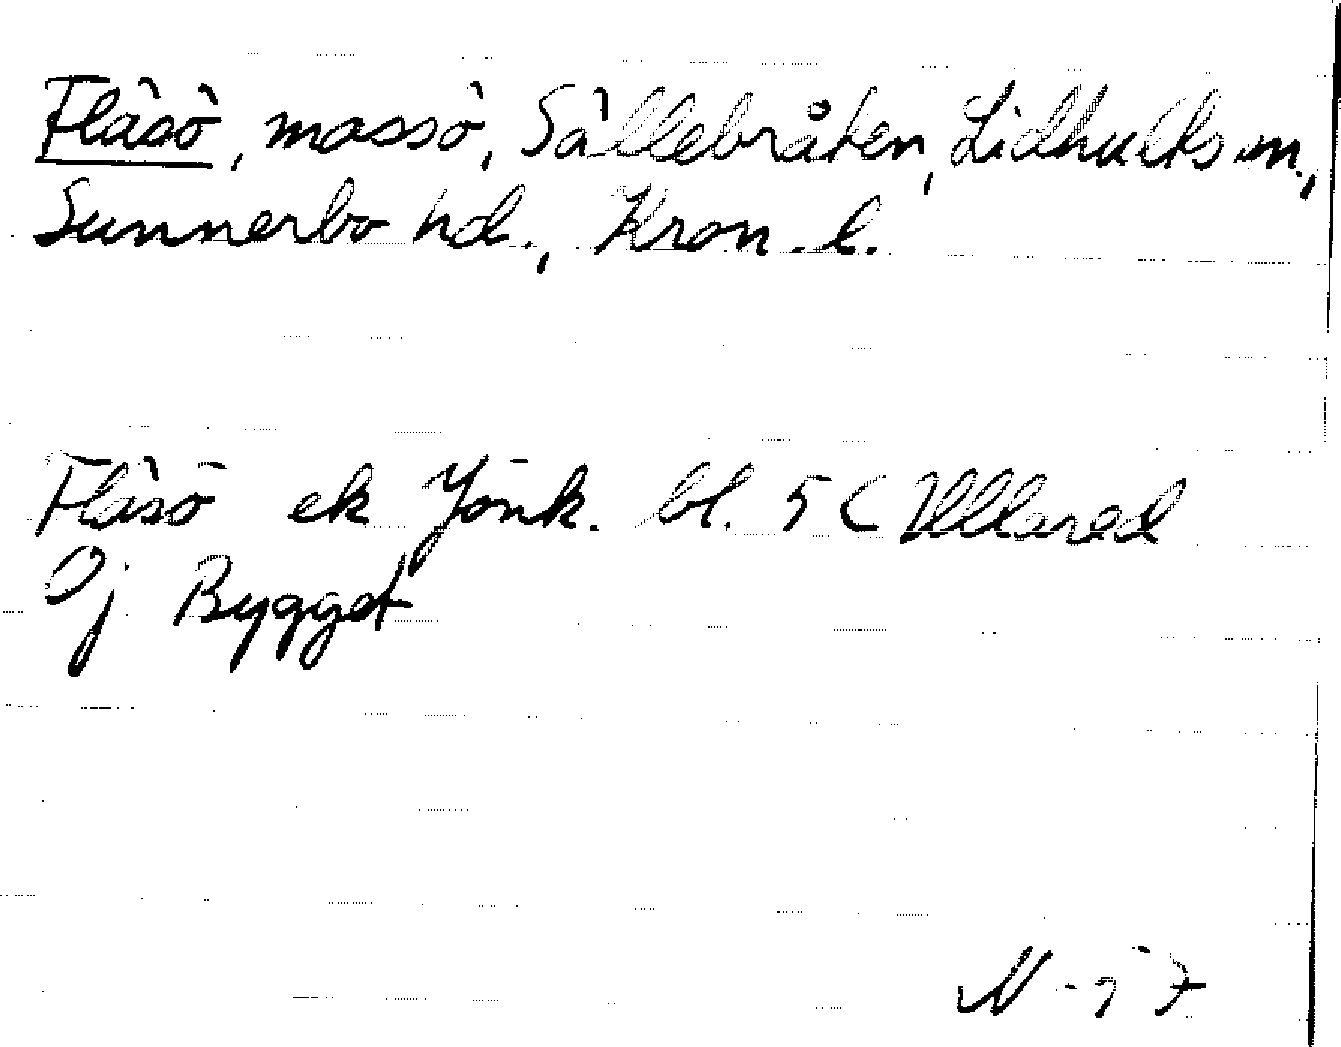 Flåsö, mossö, Sällebråten, Lidhults sn.,
Sunnerbo hd., Kron. l.
Flåsö ek Jönk. bl. 5 C Ullared
Oj Bygget